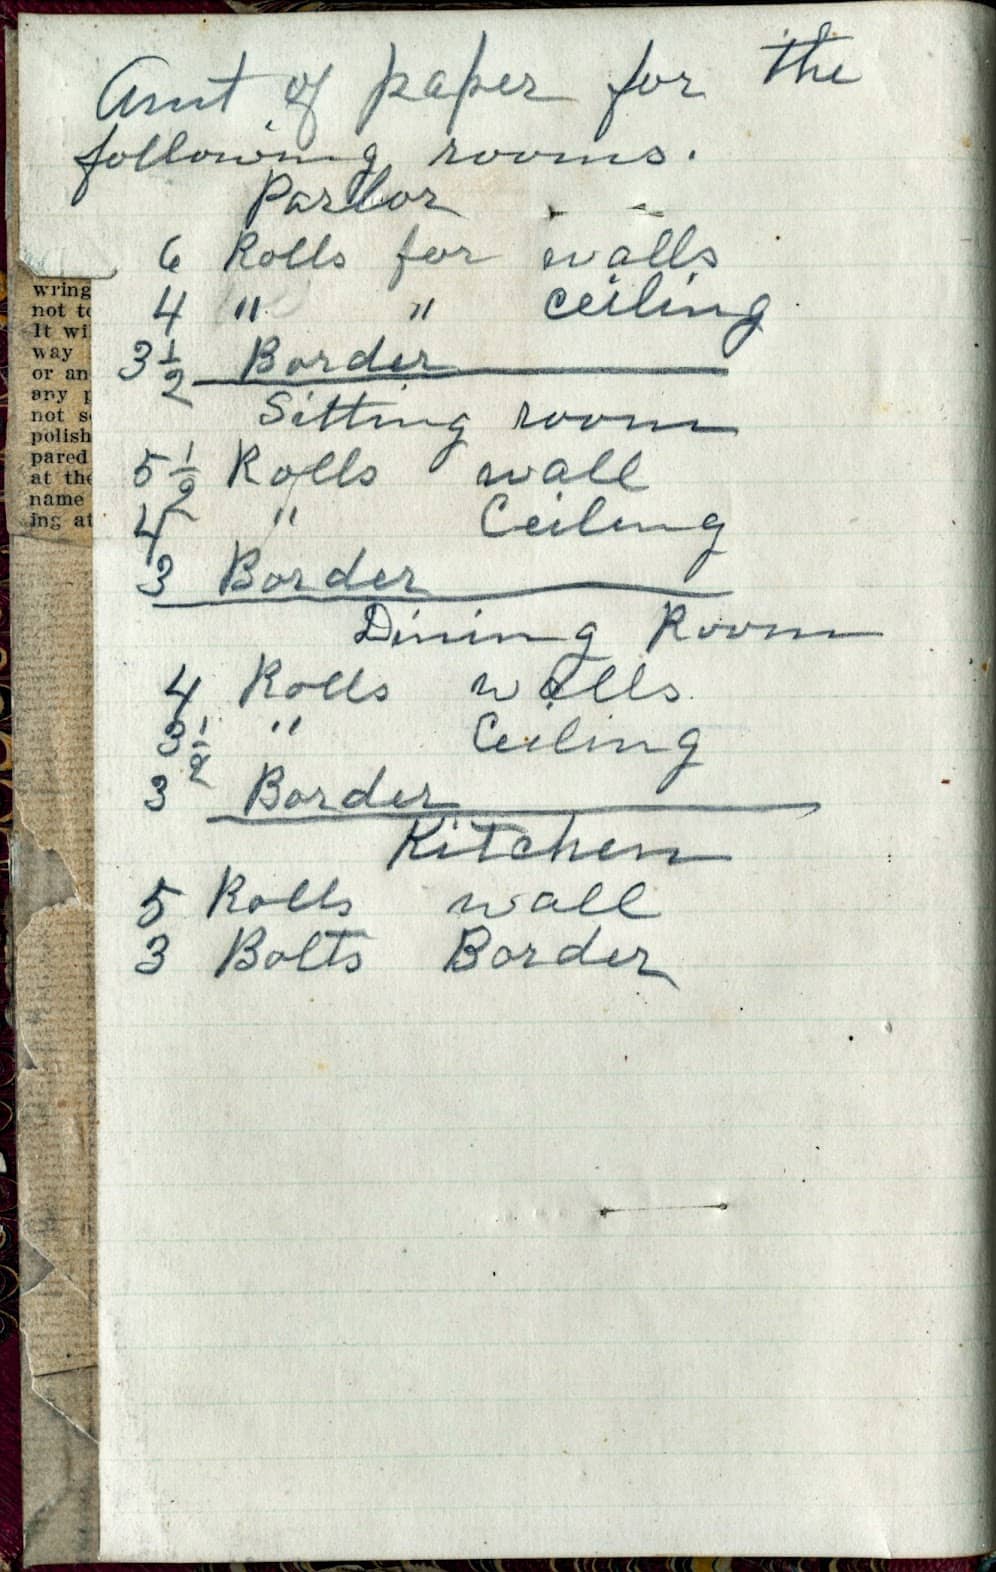 Amt of paper for the
following rooms.
Parlor
6 Rolls for walls
4 " " ceiling
3 1/2 Border
Sitting room
5 1/2 Rolls wall
4 " Ceiling
3 Border
Dining Room
4 Rolls walls
3 1/2 " Ceiling
3 Border
Kitchen
5 Rolls wall
3 Bolts Border
wring
not to
It wi
way
or an
any p
not s
polish
pared
at the
name
ing at